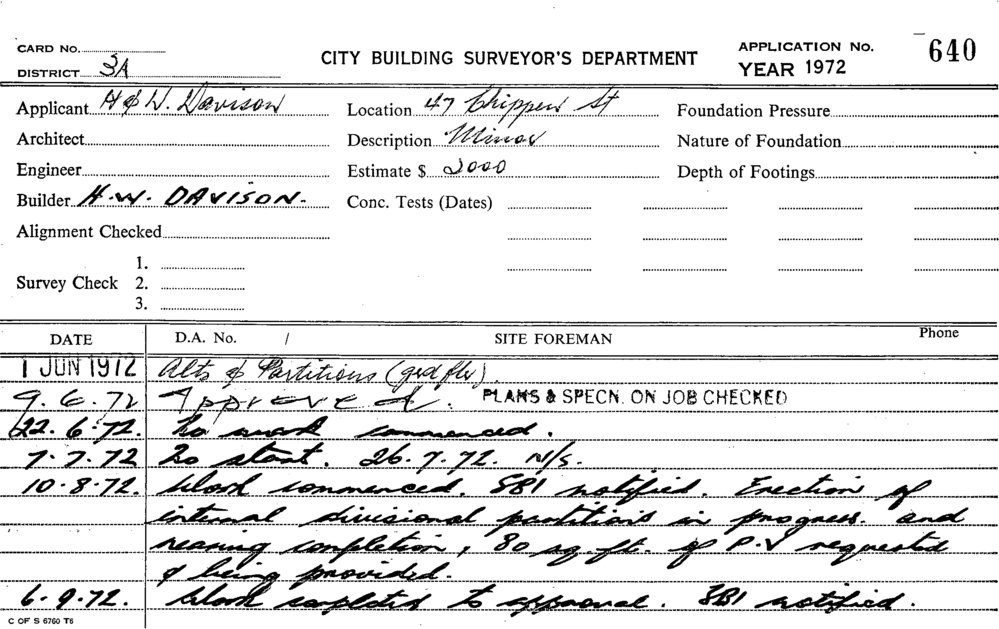 CARD No.
DISTRICT 3A
CITY BUILDING SURVEYOR'S DEPARTMENT
APPLICATION No. 640
YEAR 1972
Applicant H & W. Davison
Location 47 Chippen St
Foundation Pressure
Architect
Description Minor
Nature of Foundation
Engineer
Estimate $ 2000
Depth of Footings
Builder H.W. DAVISON.
Conc. Tests (Dates)
Alignment Checked
Survey Check 1.
2.
3.
DATE D.A. No. / SITE FOREMAN Phone
1 JUN 1972 Alts & Partitions (grd flr)
9.6.72 Approved. PLANS & SPECN. ON JOB CHECKED
22.6.72. No work commenced.
7.7.72 No start. 26.7.72. N/S.
10.8.72. Work commenced. SBI notified. Erection of
internal divisional partitions in progress. and
nearing completion, 80 sq. ft. of P.V requested
& being provided.
6.9.72. Work completed to approval. SBI notified.
C OF S 6760 T6